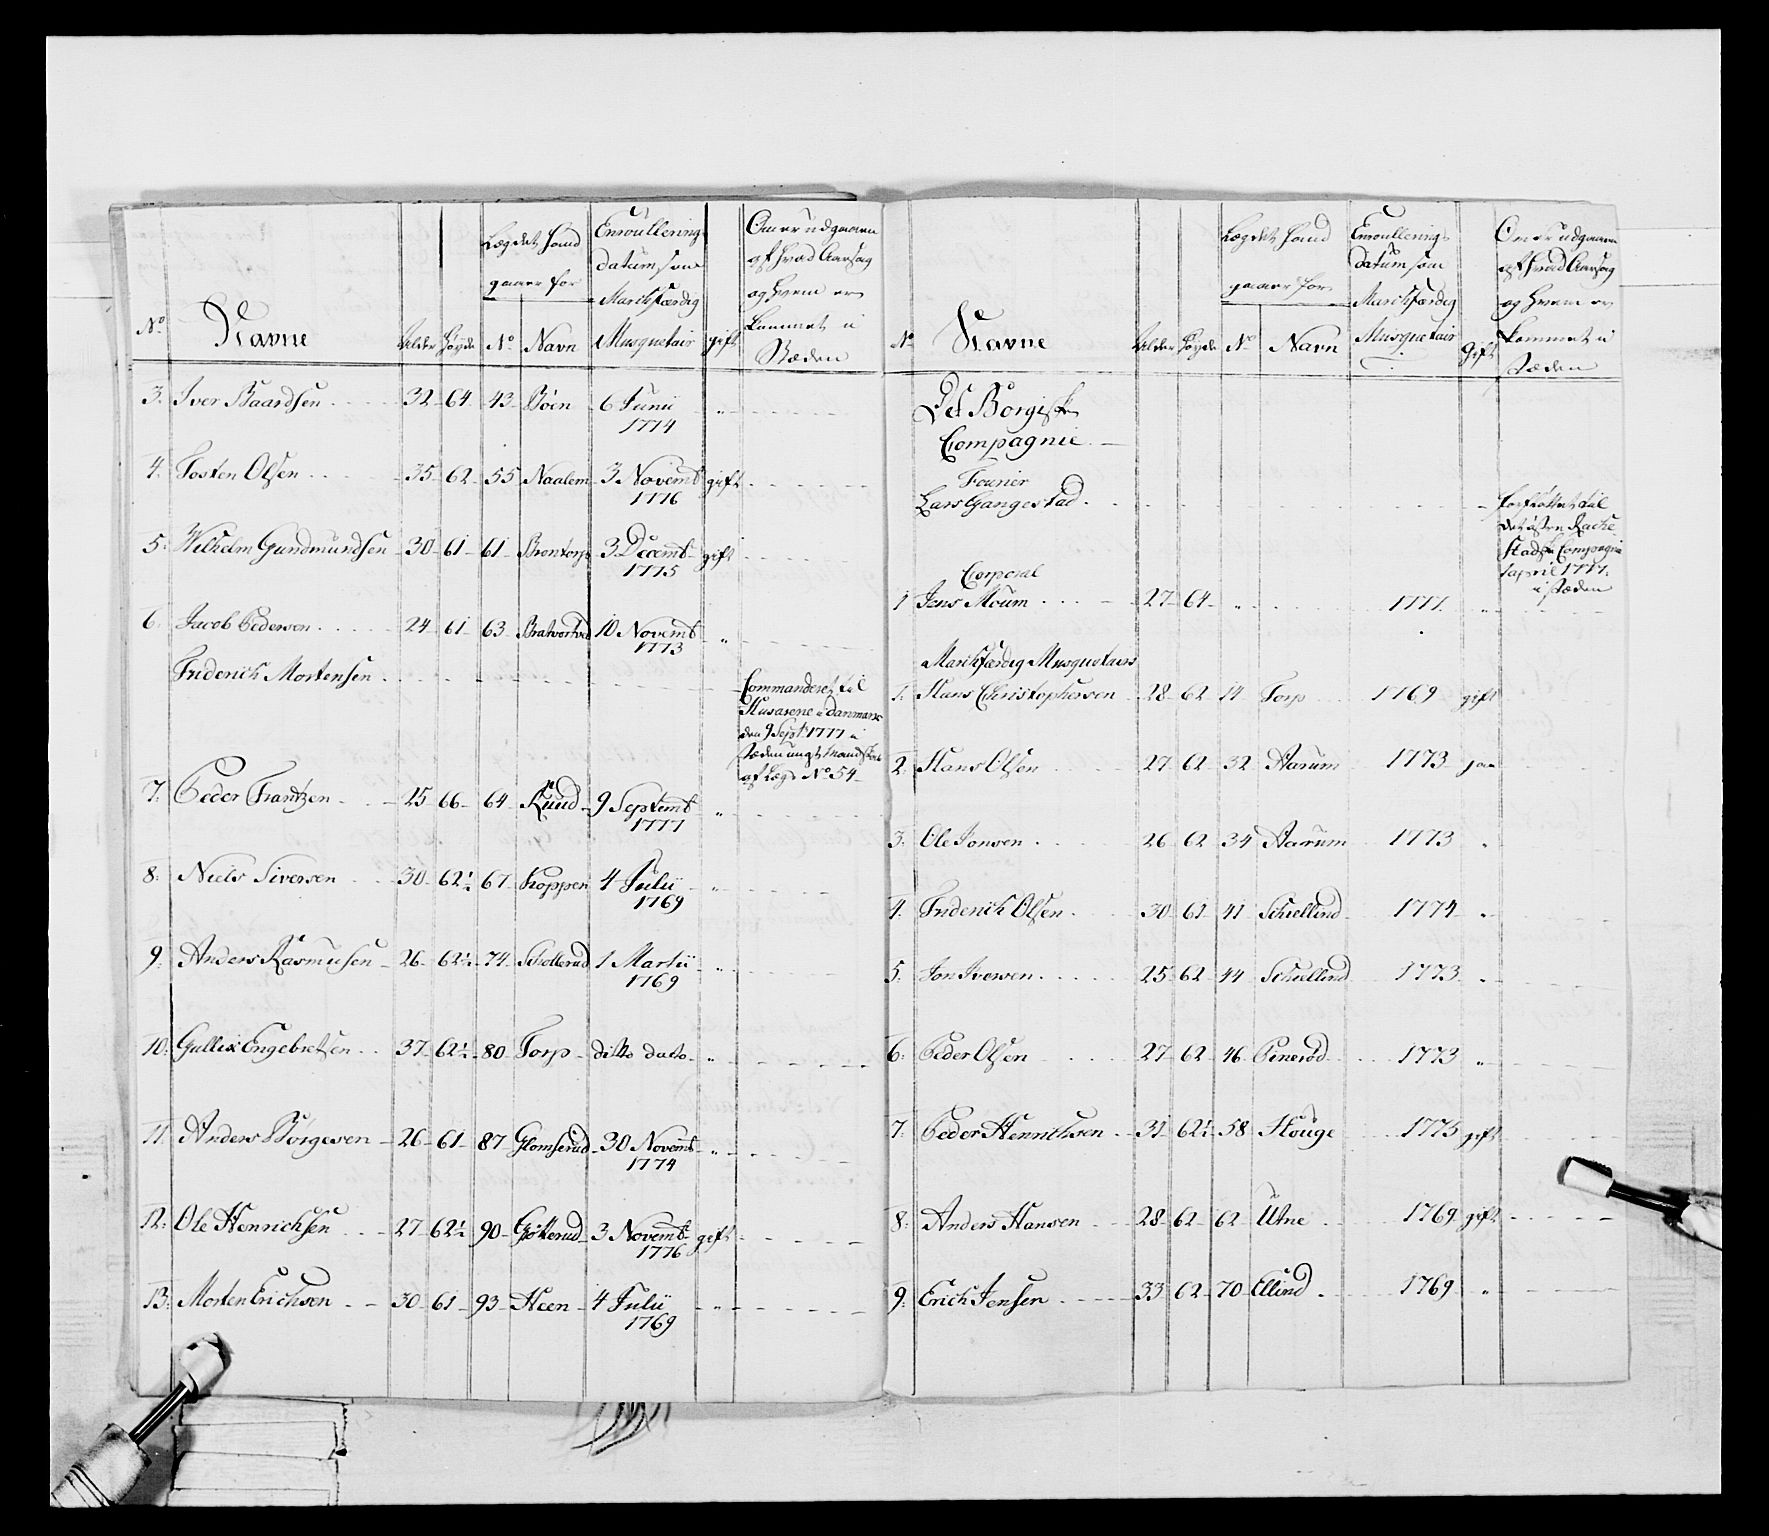 No Navne Alder Høyde Lægdet hand gaaer for No Navn Enroullerings datum som Marchfærdig Musquetair gift Om er udgaaen af hvad Aarsag og hvem er kommet i Stæden
3. Iver Baardsen 32 64 43 Böen 6 Junii 1774 "
4. Tosten Olsen 35 62 55 Naalem 3 Novemb 1776 gift
5. Wilhelm Gundmundsen 30 61 61 Brontorp 3 Decemb 1775 gift
6. Jacob Pedersen 24 61 63 10 Novemb 1773 "
Friderich Mortensen Commanderet til
Husarene i Danmark
den 9 Sept. 1777 i
stæden ungt Mandskab
af Læg No 54
7. Peder Frantzen 25 66 64 Ruud 9 Septemb 1777 "
8. Niels Siversen 30 62½ 67 Kopperu 4 Julii 1769 "
9. Anders Rasmusen 26 62½ 74 Schollerud 1 Martii 1769 "
10. Gullex Engebretsen 37 62½ 80 Torp ditto dato "
11. Anders Börgesen 26 61 87 Glomserud 30 Novemb 1774 "
12. Ole Henrichsen 27 62½ 90 Götterud 3 Novemb 1776 gift
13. Morten Erichsen 30 61 93 Heen 4 Julii 1769 "
No Navne Alder Høyde Lægdet hand gaaer for No Navn Enroullerings datum som Marchfærdig Musquetair Gift Om er udgaaen af hvad Aarsag og hvem er kommet i Stæden
Det Borgiske
Compagnie
Fourier
Lars Gangestad forflöttet til
det östre Rache
stadske Compagnie
1 april 1777.
i stæden
Corporal
1 Jens Moum 27 64 " 1777 "
Marchfærdig Musquetairs
1. Hans Christophersen 28 62 14 Torp 1769 gift
2. Hans Olsen 27 62 32 Aarum 1773 jaa
3. Ole Jonsen 26 62 34 Aarum 1773 "
4. Friderich Olsen 30 61 41 Schiellind 1774 "
5. Jon Iversen 25 62 44 Schiellind 1773 "
6. Peder Olsen 27 62 46 Pineröd 1773 "
7. Peder Henrichsen 31 62½ 58 Houge 1775 gift
8. Anders Hansen 28 62 62 Utne 1769 gift
9. Erich Jensen 33 62 70 Ellind 1769 "